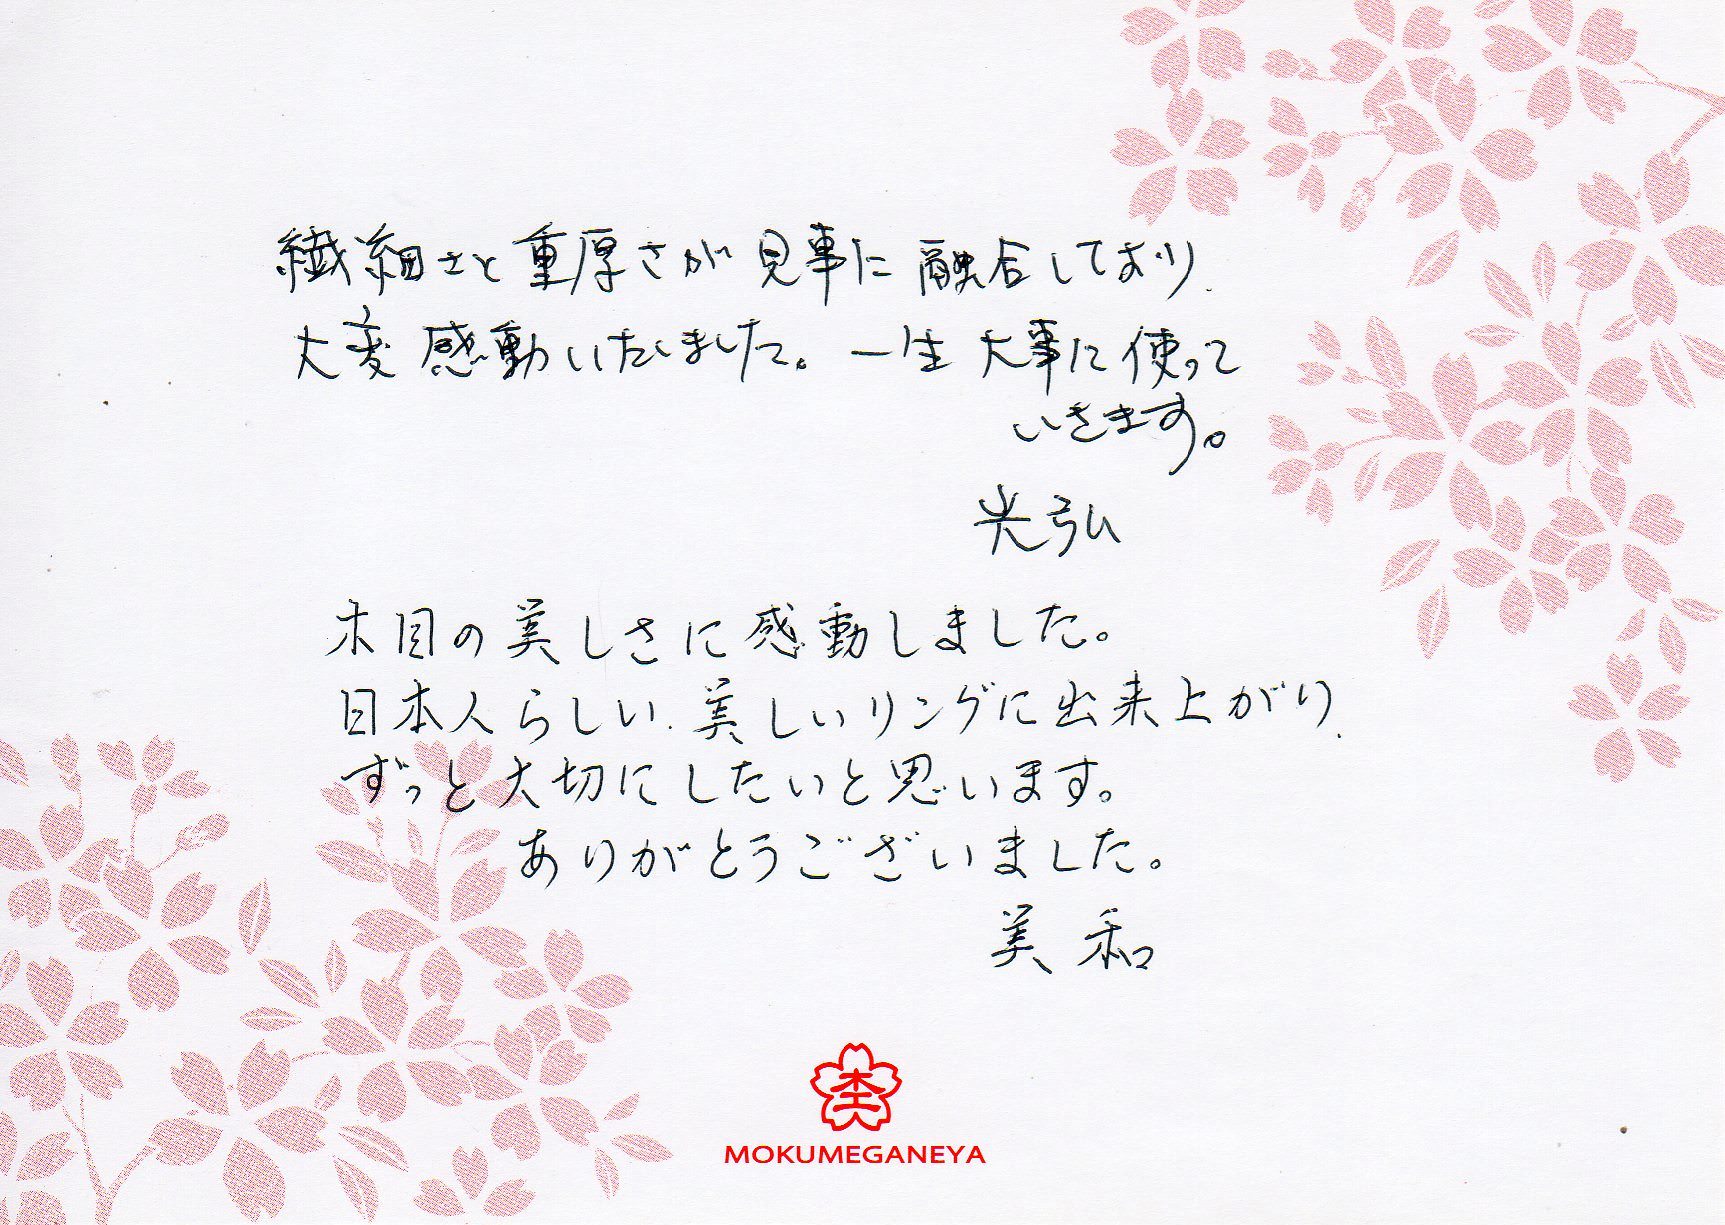 繊細さと重厚さが見事に融合しており、
大変感動いたしました。一生大事に使って
いきます。
光弘
木目の美しさに感動しました。
日本人らしい、美しいリングに出来上がり、
ずっと大切にしたいと思います。
ありがとうございました。
美和
MOKUMEGANEYA